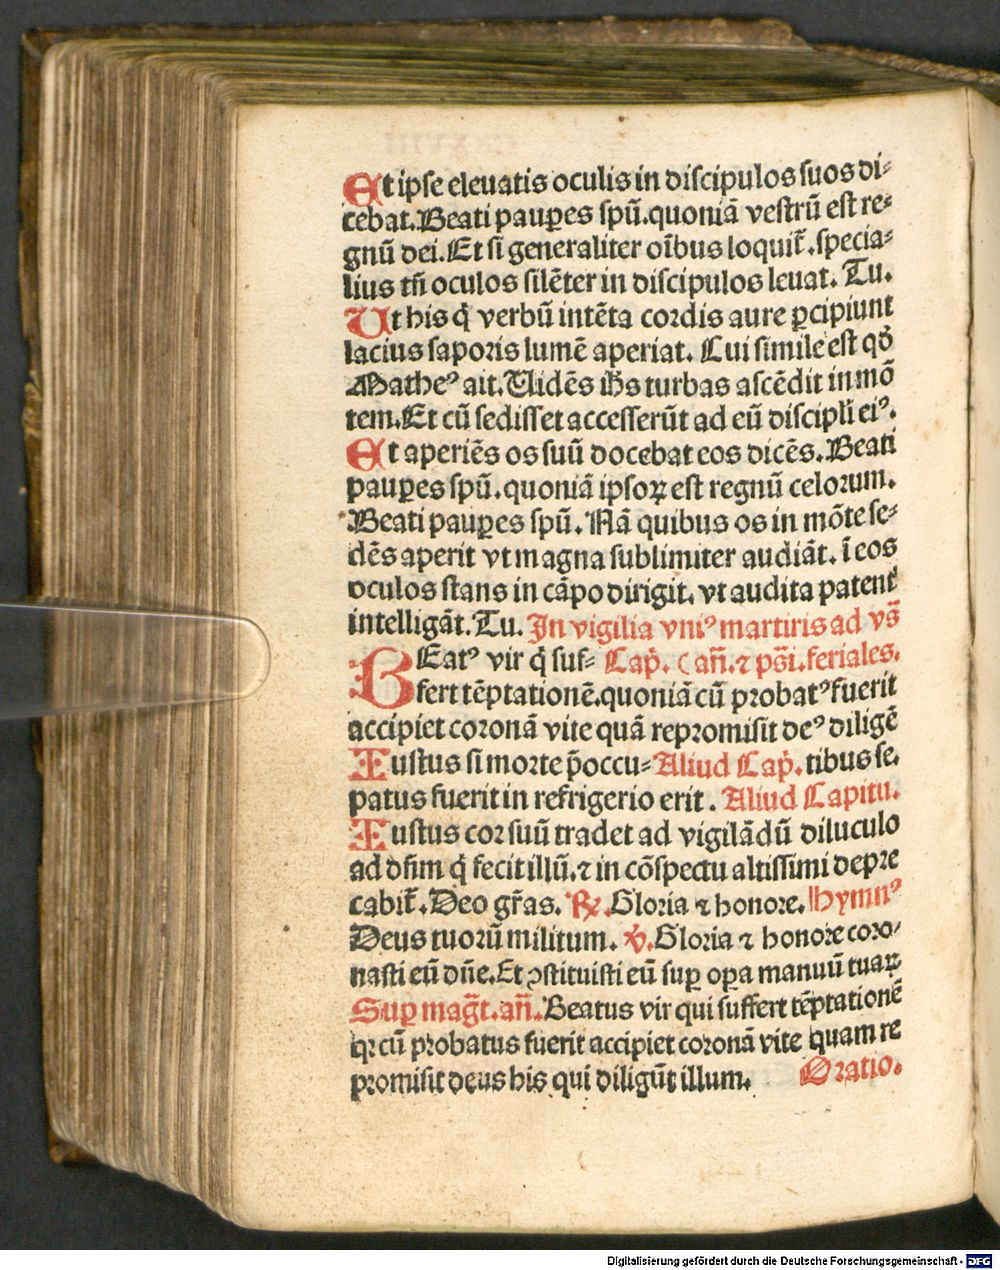 Et ipse eleuatis oculis in discipulos suos di⸗
cebat. Beati paup̲es sp̅u̅. quoniā vestrū est re⸗
gnū dei. Et si generaliter oi̅bus loquit̉. specia⸗
lius tn̄ oculos silēter in discipulos leuat. Tu.
Ut his q̇ verbū intēta cordis aure p̲cipiunt
lacius saporis lumē aperiat. Cui simile est qď
Matheꝰ ait. Uidēs ih̄s turbas ascēdit in mō
tem. Et cū sedisset accesserūt ad eū discipłi eiꝰ.
Et aperiēs os suū docebat eos dicēs. Beati
paup̲es spū. quoniā ipsoꝝ est regnū celorum.
Beati paup̲es spū. Nā quibus os in mōte se⸗
dēs aperit vt magna sublimiter audiāt. ī eos
oculos stans in cāpo dirigit. vt audita patent̉
intelligāt. Tu. In vigilia vniꝰ martiris ad vs̄
BEatꝰ vir q̇ suf⸗ Cap̉. ( an̄. ⁊ ps̄i. feriales.
fert tēptationē. quoniā cū probatꝰ fuerit
accipiet coronā vite quā repromisit deꝰ diligē
Iustus si morte p̄occu⸗ Aliud Cap̉. tibus se.
patus fuerit in refrigerio erit. Aliud Capitu.
Iustus cor suū tradet ad vigilādū diluculo
ad dn̄m q̇ fecit illū. ⁊ in cōspectu altissimi depre
cabit̉. Deo gr̄as. ℟. Gloria ⁊ honore. Hymnꝰ
Deus tuorū militum. ℣. Gloria ⁊ honore coro⸗
nasti eū dn̄e. Et ꝯstituisti eū sup̲ op̲a manuū tuaꝝ
Sup̲ mag̅t. an̄. Beatus vir qui suffert tēptationē
qꝛ cū probatus fuerit accipiet coronā vite quam re
promisit deus his qui diligūt illum. Oratio.
Digitalisierung gefördert durch die Deutsche Forschungsgemeinschaft - DFG